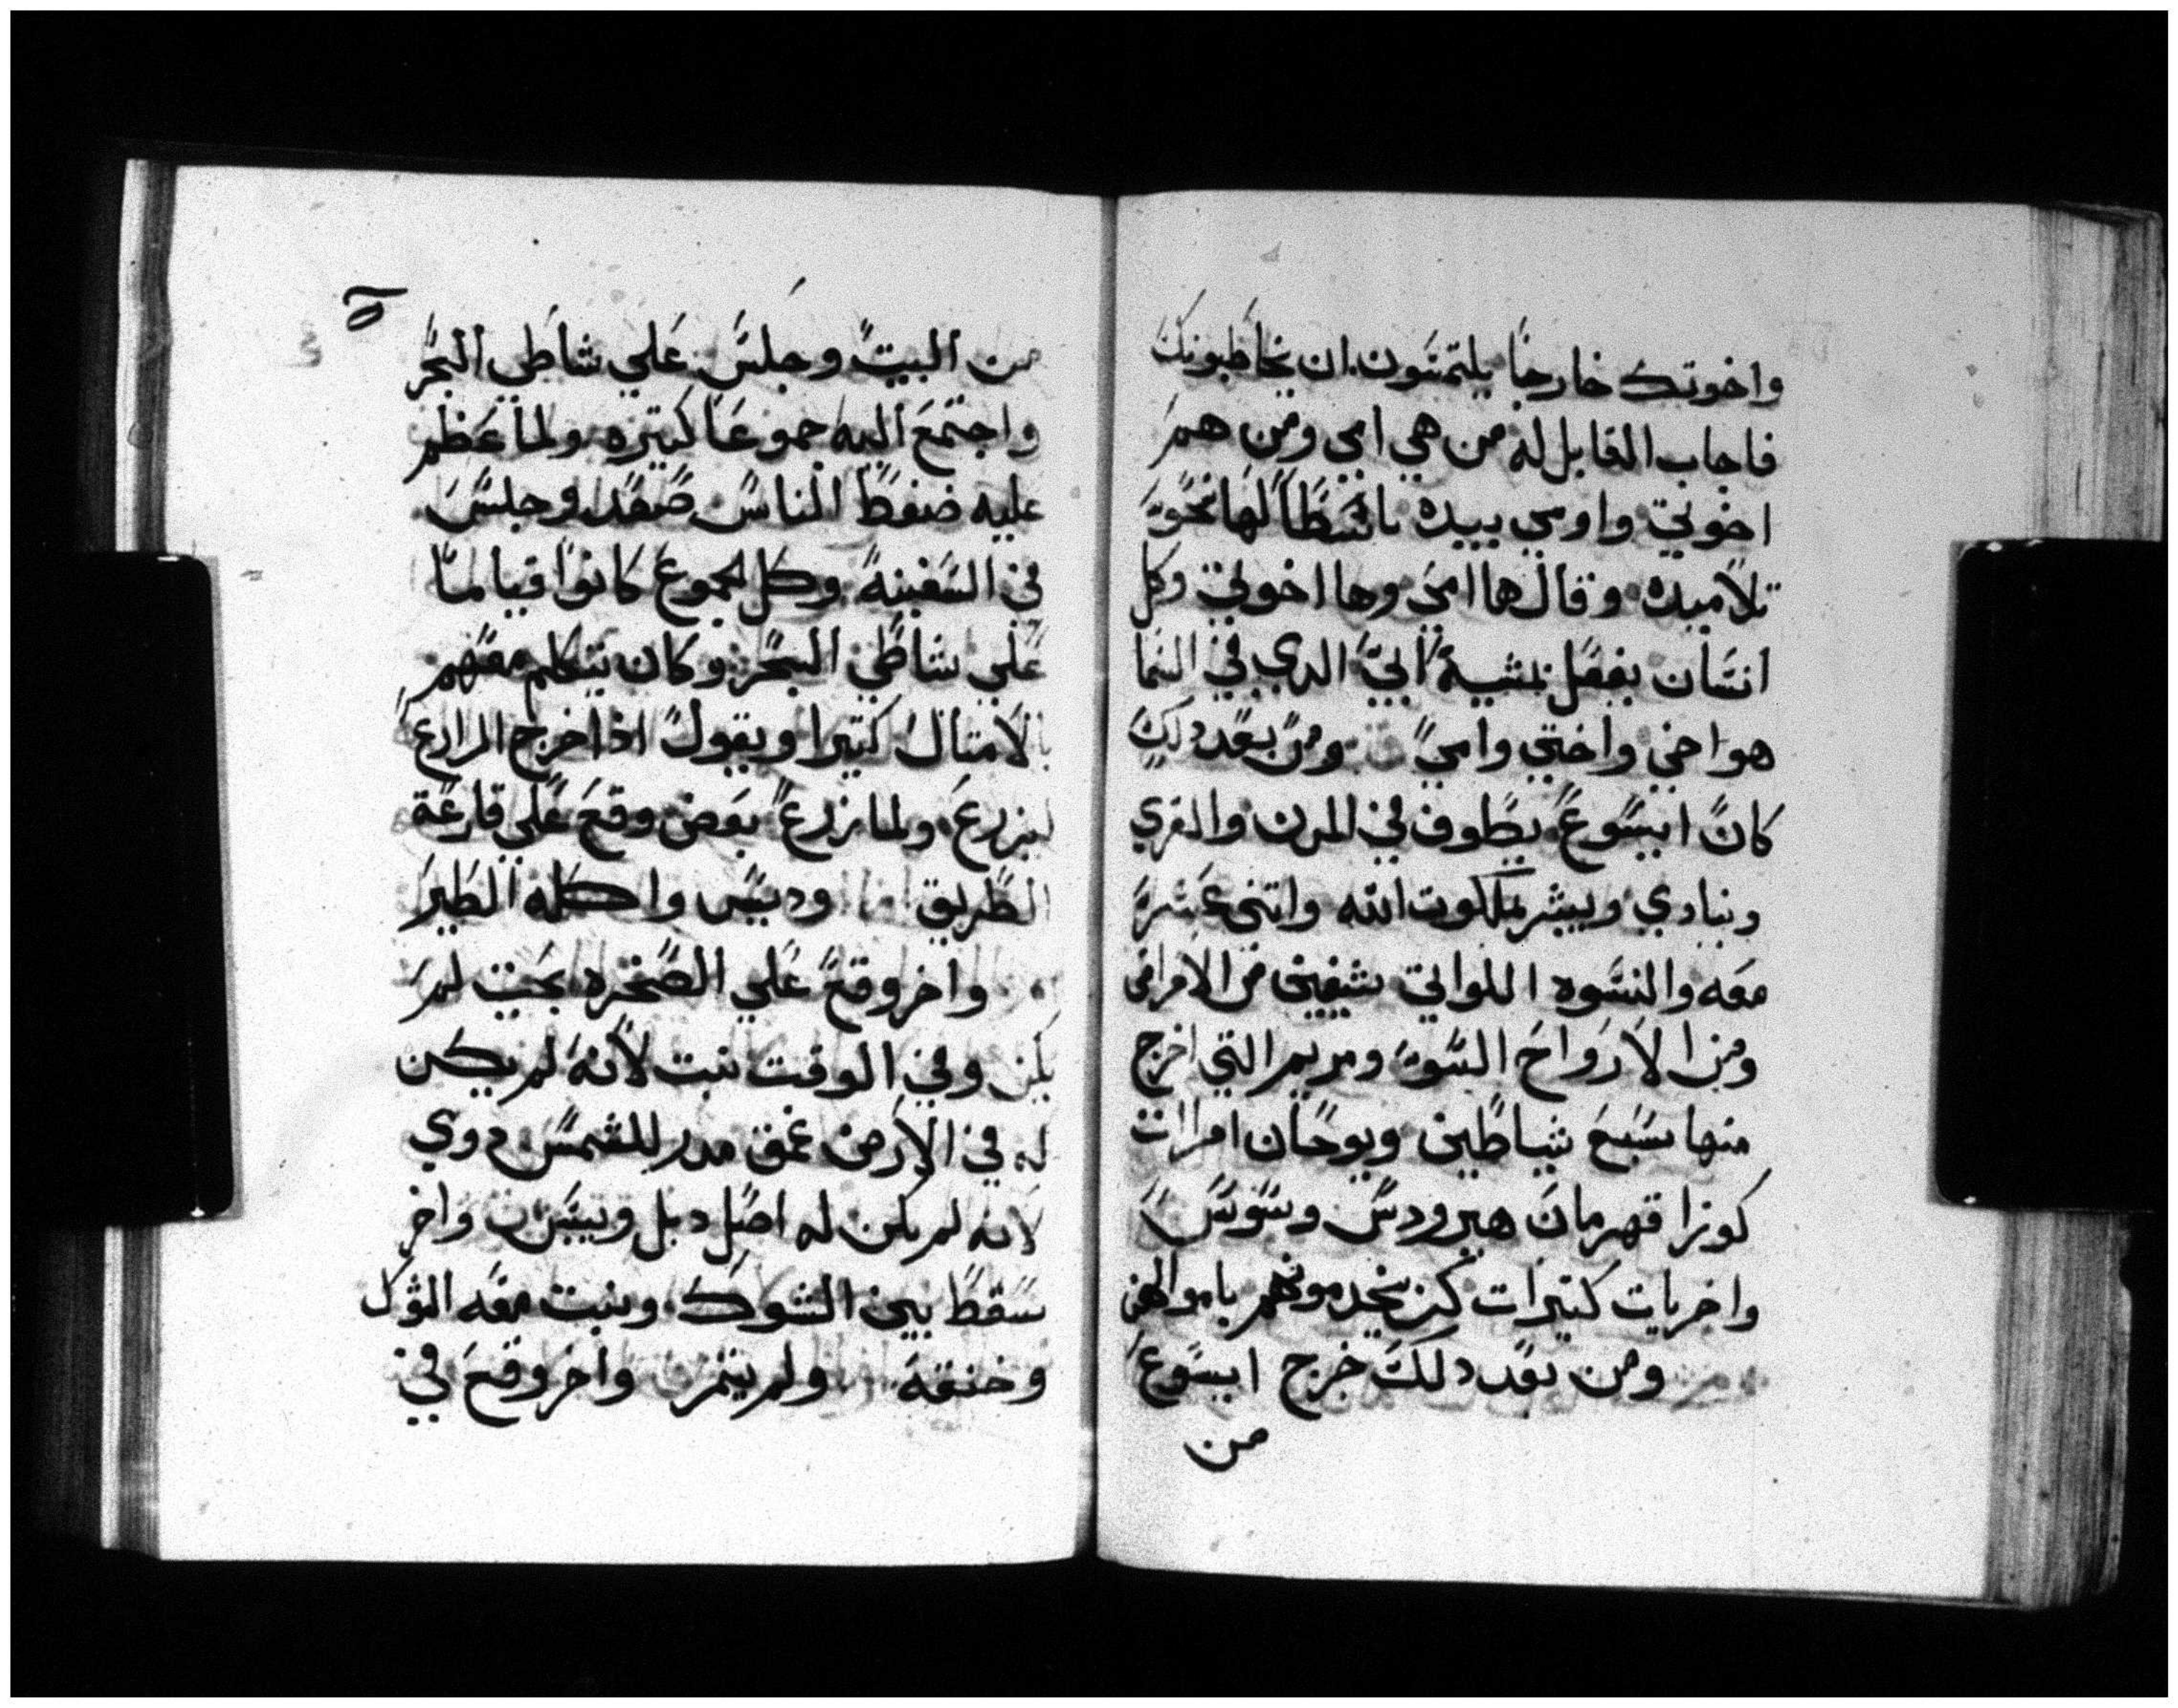 واخوتك خارجا يلتمسون ان يخاطبونك
فاجاب القايل له من هي امي ومن هم
اخوتي واومي بيده باسطا لها نحو
تلاميده وقال ها امي وها اخوتي وكل
انسان يفعل بمشية ابي الدي في السما
هو اخي واختي وامي ومن بعد دلك
كان ايسوع يطوف في المدن والقري
وينادي ويبشر بملكوت الله واتني عشر
معه والنسوه اللواتي شفيين من الامراض
ومن الارواح السو ومريم التي اخرج
منها سبع شياطين ويوحان امرات
كوزا قهرمان هيرودس وسوسن
واخريات كتيرات كن يخدمونهم باموالهن
ومن بعد دلك خرج ايسوع
من
من البيت وجلس علي شاطي البحر
واجتمع اليه جموعا كتيره ولما عظم
عليه ضغط الناس صعد وجلس
في السفينة وكل الجموع كانوا قياما
علي شاطي البحر وكان يتكلم معهم
بالامتال كتيرا ويقول ادا خرج الزارع
ليزرع ولما زرع بعض وقع علي قارعة
الطريق وديس واكله الطير
واخر وقع علي الصخره بحيت لم
يكن وفي الوقت نبت لانه لم يكن
له في الارض عمق للشمس دوي
لانه لم يكن له اصل دبل ويبس واخر
سقط بين الشوك ونبت معه الشوك
وخنقه ولم يتمر واخر وقع في